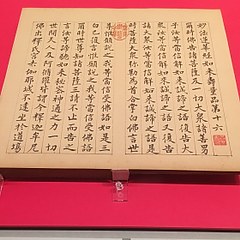 妙法蓮華經如來壽量品第十六
爾時佛告諸菩薩及一切大眾諸善男
子汝等當信解如來誠諦之語復告大
眾汝等當信解如來誠諦之語又復告
諸大眾汝等當信解如來誠諦之語是
時菩薩大眾彌勒為首合掌白佛言世
尊惟願說之我等當信受佛語如是三
白已復言惟願說之我等當信受佛語
爾時世尊知諸菩薩三請不止而告之
言汝等諦聽如來秘密神通之力一切
世間天人及阿修羅皆謂今釋迦牟尼
佛出釋氏宮去伽耶城不遠坐於道場